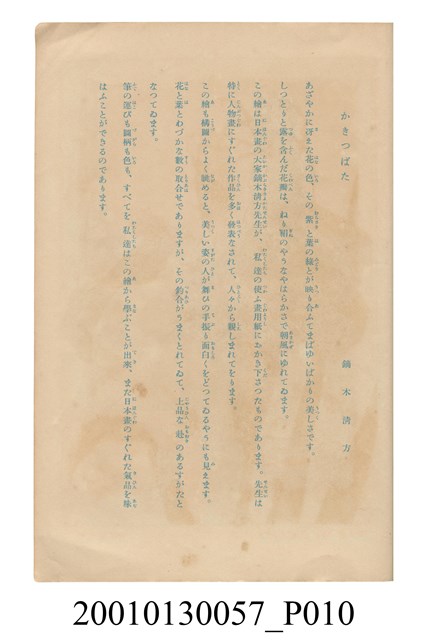 かきつばた
鏑木清方
あざやかに冴えた花の色、その紫と葉の緑とが映り合ふてまばゆいばかりの美しさです。
しつとりと露を含んだ花瓣は、ねり絹のやうなやはらかさで朝風にゆれてゐます。
この繪は日本畫の大家鏑木清方先生が、私達の使ふ畫用紙におかき下さつたものであります。先生は
特に人物畫にすぐれた作品を多く發表なされて、人々から親しまれてをります。
この繪も構圖からよく眺めると、美しい姿の人が舞ひの手振り面白くをどつてゐるやうにも見えます。
花と葉とわづかな數の取合せでありますが、その釣合がうまくとれてゐて、上品な趣のあるすがたと
なつてゐます。
筆の運びも圖柄も色も、すべてを私達はこの繪から學ぶことが出來、また日本畫のすぐれた氣品を味
はふことができるのであります。
20010130057_P010